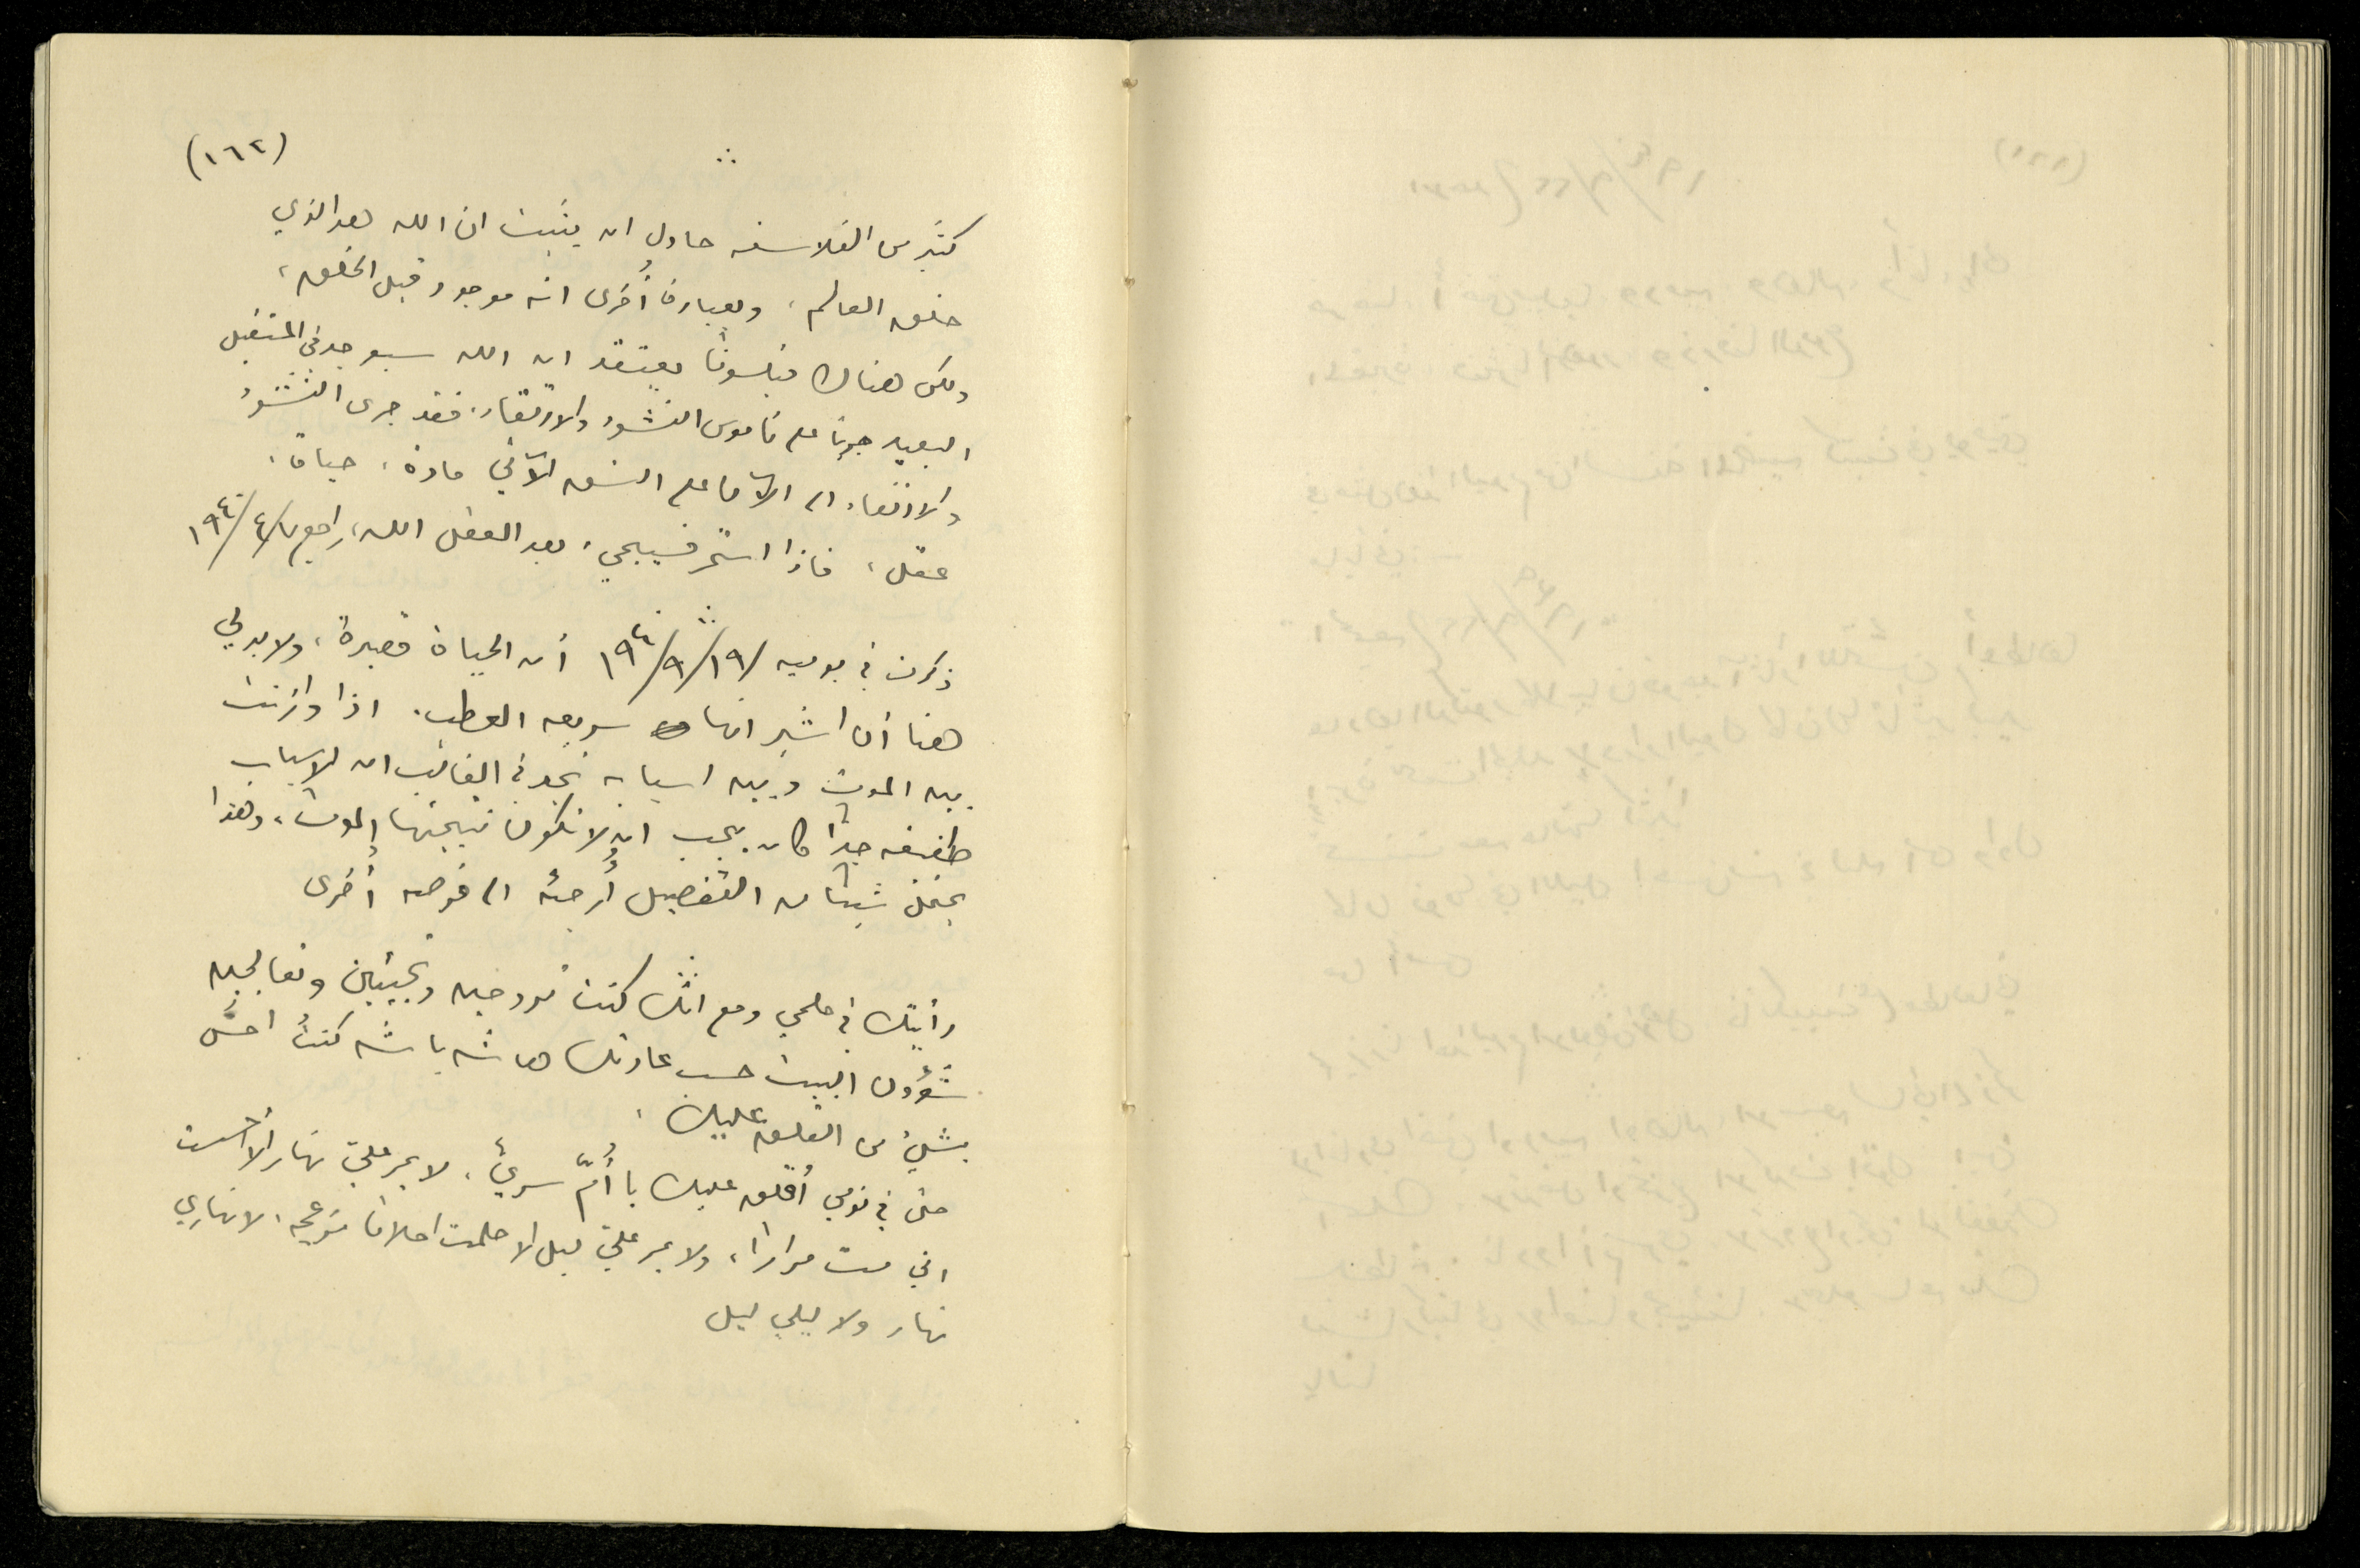 (١٦٢)
كثير من الفلاسفه حاول ان يثبت ان الله هو الذي
خلق العالم، وبعبارة أُخرى انه موجود قبل الخلق،
ولكن هناك فيلسوفاً يعتقد ان الله سيوجد في المستقبل
البعيد جرياً على ناموس النشوء والارتقاء. فقد جرى النشوء
والارتقاء الى الآن على النسق الآتي مادة، حياة،
عقل، فاذا استمر فسيجي، بعد العقل الله، راجع ٧/٤/١٩٤٠
ذكرت في يوميه ١٩/٩/١٩٤٠ أن الحياة قصيرة، ولا بد لي
هنا أن اشير انها سريعه العطب. اذا وازنت
بين الموت وبين اسبابه نجد في الغالب ان الاسباب
طفيفه جداً كان يجب ان لا تكون نتيجتها الموت، وهذا
يحتمل شيئا من التفصيل أُرجئه الى فرصه أُخرى
رأيتك في حلمي ومع انك كنت تروحين وتجيئين وتعالجين
شؤون البيت حسب عادتك هاشه باشه كنتُ احسّ
بشيء من القلق عليك،
حتى في نومي أقلق عليك يا أُمّ سريّ، لا يمر عليّ نهار الا أحسست
اني مت مراراً، ولا يمر عليّ ليل الا حلمت احلاماً مزعجه، لا نهاري
نهار ولا ليلي ليل